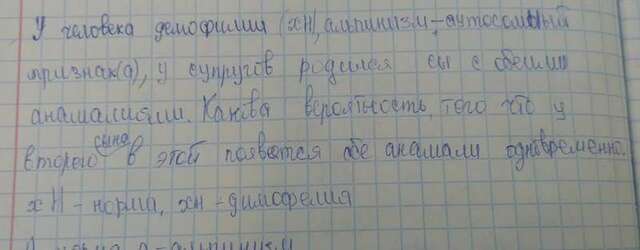 У человека демофилии (хН, альпинизм-аутосомный
признак(а), у супругов родился сы с обеими
анамалиями. Какова вероятность того что у
второго сына в этой появятся обе анамали одновременно.
хН - норма, хн - димофелия
А норма а-альпинизм